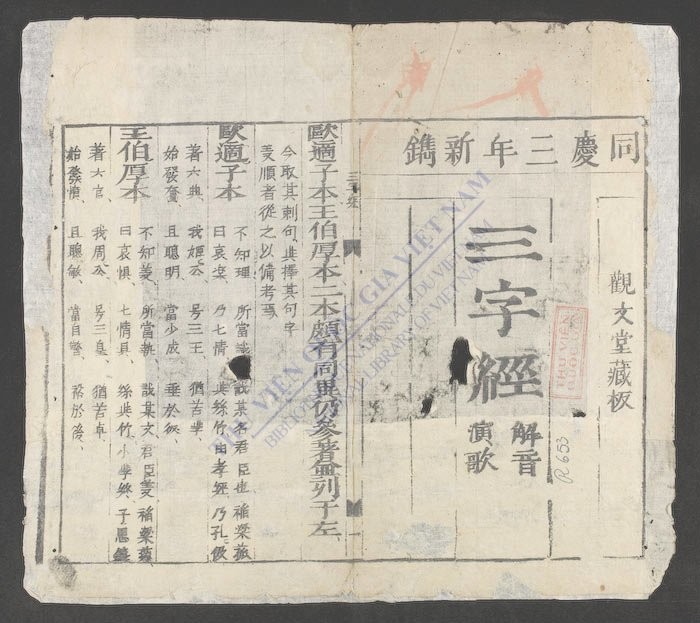 同慶三年新鐫
觀文堂藏板
三字經
解音
演歌
R 653
THƯ VIỆN QUỐC GIA VIỆT NAM
BIBLIOTHÈQUE NATIONALE DU VIETNAM
NATIONAL LIBRARY OF VIETNAM
歐適子本王伯厚本二本頗有同異仍參著並列于左
今取其刺句與擇其句字
義順者從之以備考焉
歐適子本 不知理 所當識 戢某名 君臣也 稲粱菽
曰哀樂 乃七情 與絲竹 由孝經 乃孔伋
著六典 我姬公 号三王 猶苦卑
始發奮 且聰明 當少成 垂於後
王伯厚本 不知義 所當執 戢某文 君臣義 稲粱菽
曰哀惧 七情具 絲與竹 小學終 子思
著六官 我周公 号三皇 猶苦卓
始發憤 且聰敏 當自警 於後